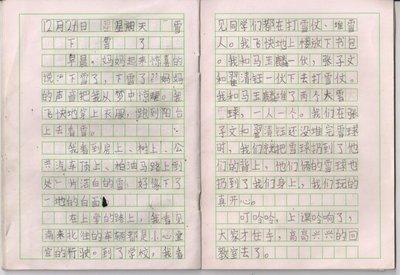 12月21日 星期天 雪
下雪了
早晨，妈妈起来惊喜的
说：“下雪了，下雪了！”妈妈
的声音把我从梦中惊醒。我
飞快地穿上衣服，跑到阳台
上去看雪。
我看到房上、树上、公
共汽车顶上、柏油马路上到
处一片洁白的雪，好像下了
一地的白面。
在上学的路上，我看见
南来北往的车辆都是小心翼
的行驶。到了学校，我看
见同学们都在打雪仗、堆雪
人。我飞快地上楼放下书包
。我和王麒麟一伙，张子文
和翟清钰一伙下去打雪仗。
我和王麒麟堆了两个大雪
球，一人一个。我们在张
子文和翟清钰还没堆完雪球
时，我们就把雪球扔到了他
们的背上，他们俩的雪球也
扔到了我们身上，我们玩的
真开心。
叮呤呤，上课呤响了，
大家才住手，高高兴兴的回
教室去了。